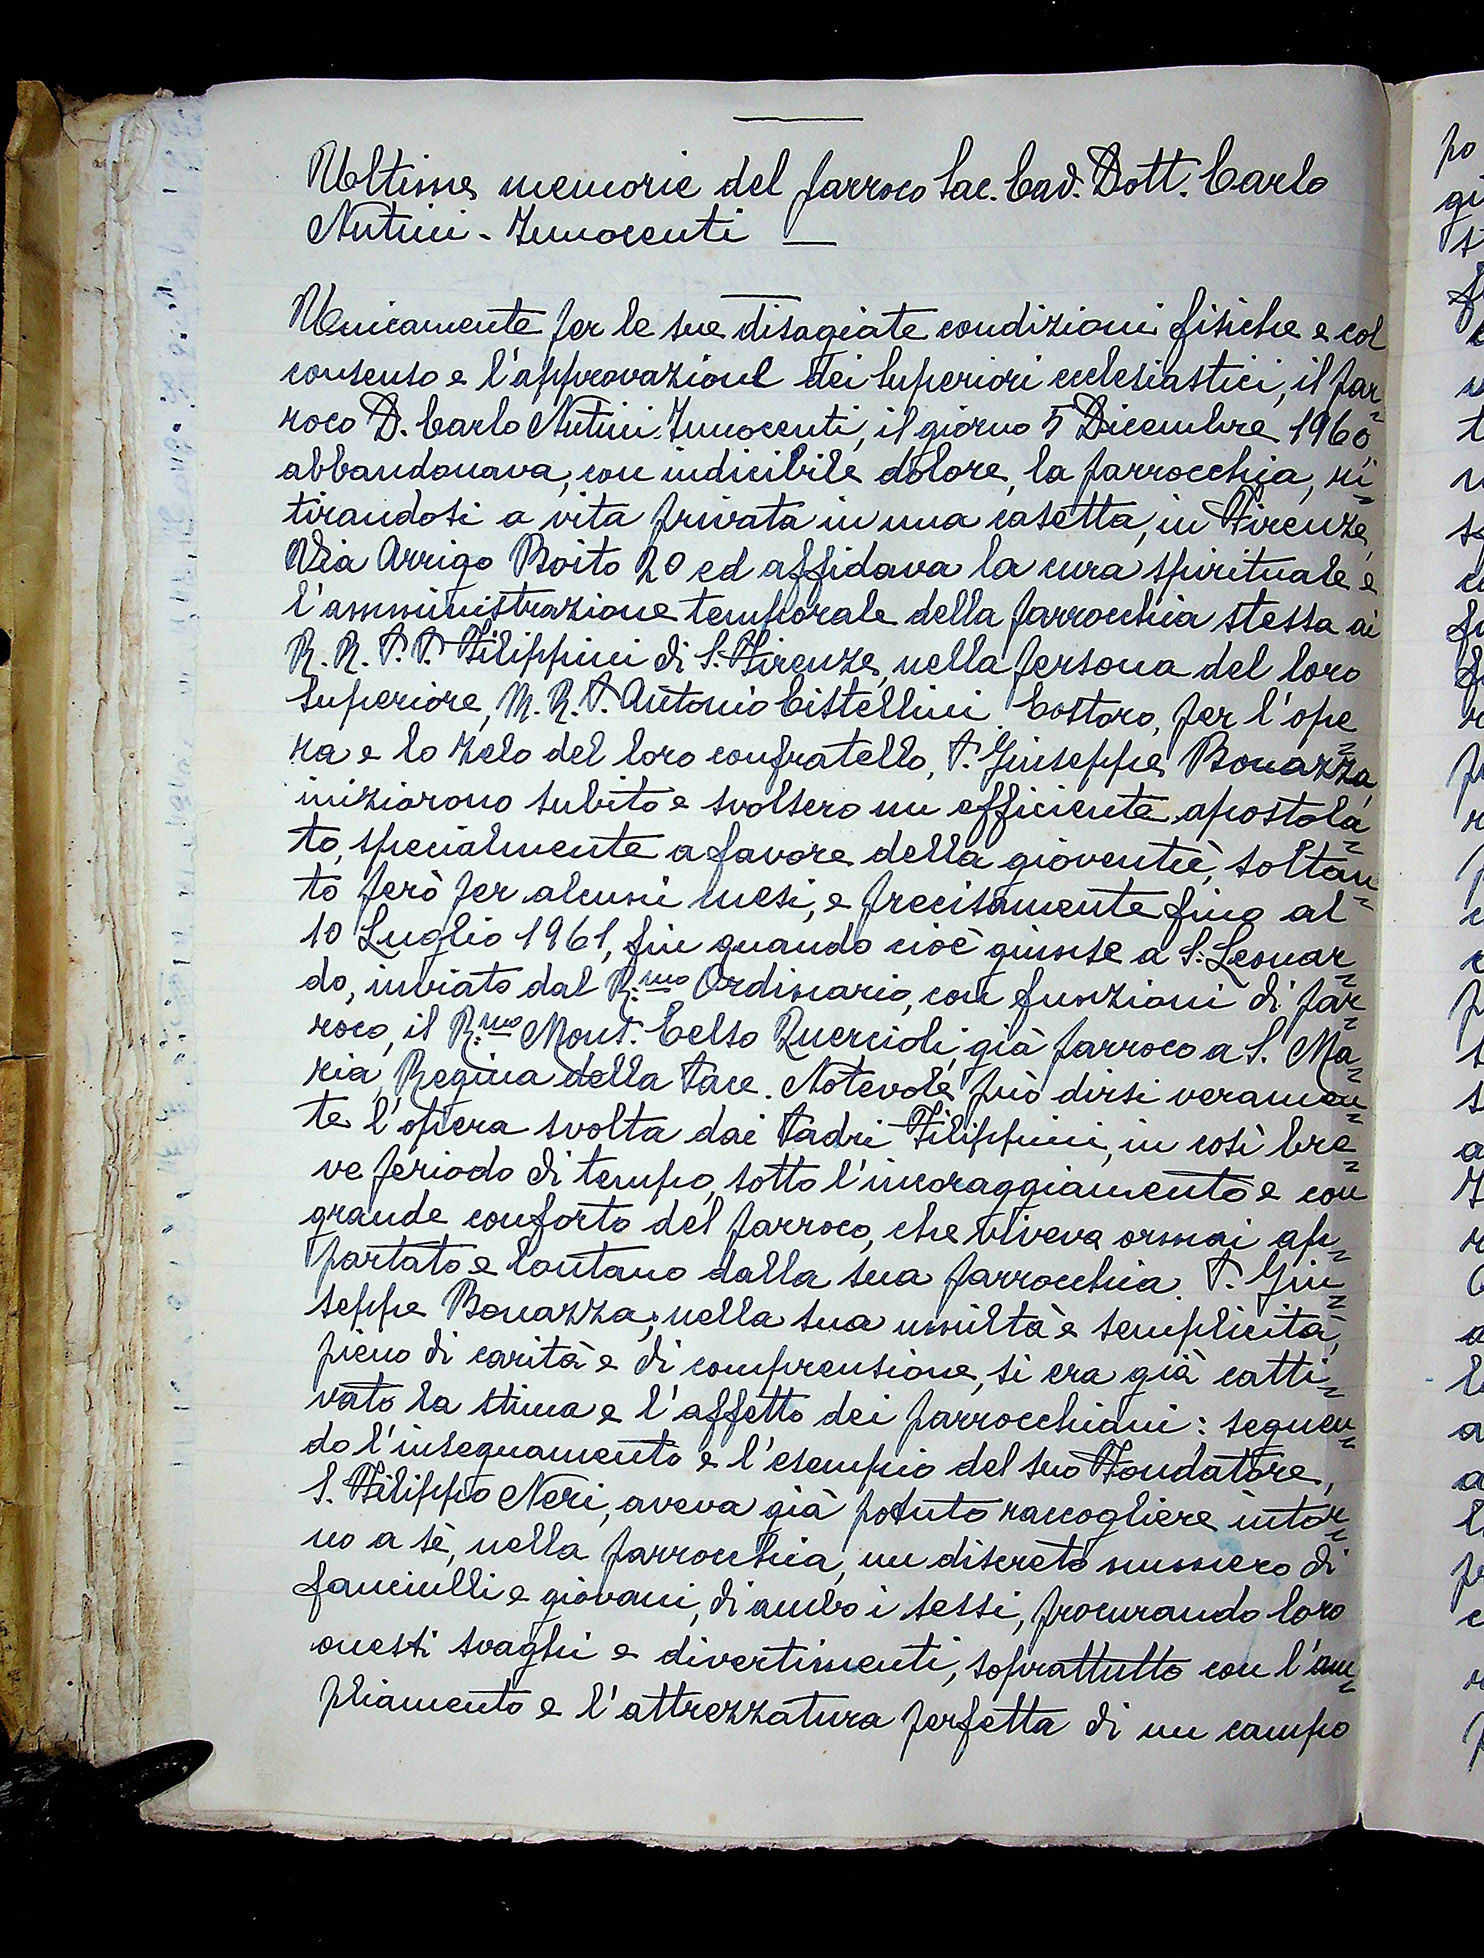 Ultime memorie del parroco Sac. Cav. Dott. Carlo
Nutini-Innocenti —
Unicamente per le sue disagiate condizioni fisiche e col
consenso e l'approvazione dei Superiori ecclesiastici, il par=
roco D. Carlo Nutini-Innocenti, il giorno 5 Dicembre 1960,
abbandonava, con indicibile dolore, la parrocchia, ri=
tirandosi a vita privata in una casetta, in Firenze,
Via Arrigo Boito 20 ed affidava la cura spirituale e
l'amministrazione temporale della parrocchia stessa ai
R. R. P. P. Filippini di S. Firenze, nella persona del loro
Superiore, M. R. P. Antonio Cistellini. Costoro, per l'ope=
ra e lo zelo del loro confratello, P. Giuseppe Bonazza,
iniziorono subito e svolsero un efficiente apostola=
to, specialmente a favore della gioventù, soltan=
to però per alcuni mesi, e precisamente fino al
10 Luglio 1961, fin quando cioè giunse a S. Leonar=
do, inviato dal R.mo Ordinario, con funzioni di par=
roco, il R.mo Mons. Celso Quercioli, già parroco a S. Ma=
ria, Regina della Pace. Notevole può dirsi veramen=
te l'opera svolta dai Padri Filippini, in così bre=
ve periodo di tempo, sotto l'incoraggiamento e con
grande conforto del parroco, che viveva ormai ap=
partato e lontano dalla sua parrocchia. P. Giu=
seppe Bonazza, nella sua umiltà e semplicità,
pieno di carità e di comprensione, si era già catti=
vato la stima e l'affetto dei parrocchiani: seguen=
do l'insegnamento e l'esempio del suo Fondatore,
S. Filippo Neri, aveva già potuto raccogliere intor=
no a sè, nella parrocchia, un discreto numero di
fanciulli e giovani, di ambo i sessi, procurando loro
onesti svaghi e divertimenti, soprattutto con l'am=
pliamento e l'attrezzatura perfetta di un campo